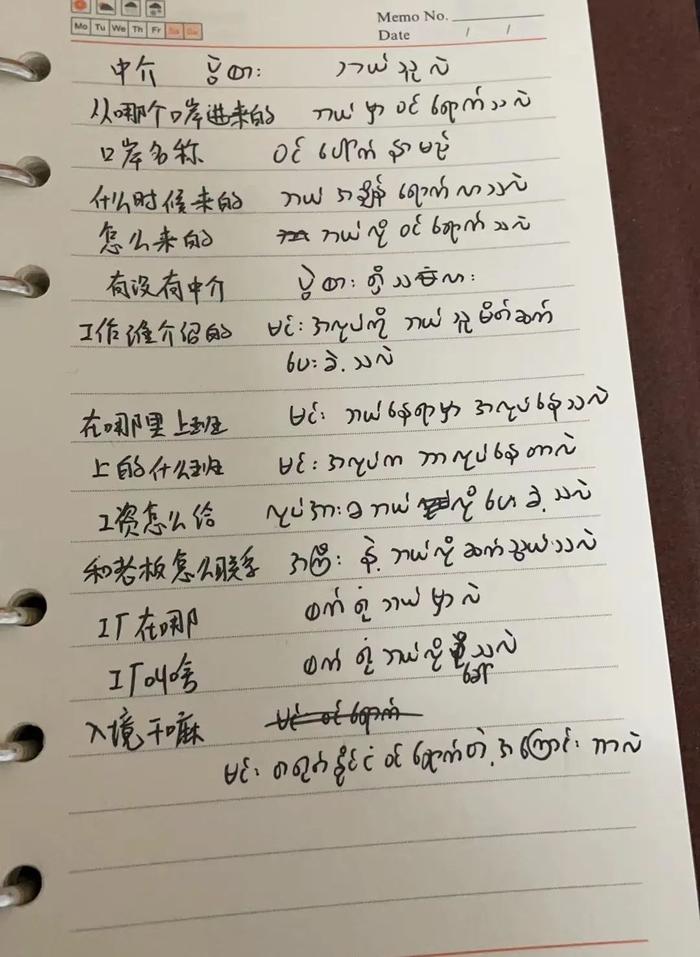 Memo No.
Mo Tu We Th Fr Sa Su
Date / /
中介 ပွဲစား: ဘယ်သူလဲ
从哪个口岸进来的 ဘယ်မှာ ဝင်ရောက်သလဲ
口岸名称 ဝင်ပေါက် နာမည်
什么时候来的 ဘယ်အချိန် ရောက်လာသလဲ
怎么来的 ဘယ်လို ဝင်ရောက်သလဲ
有没有中介 ပွဲစား: ရှိသလား:
工作谁介绍的 မင်: အလုပ်ကို ဘယ်သူ မိတ်ဆက်
ပေး: ခဲ့သလဲ
在哪里上班 မင်: ဘယ်နေရာမှာ အလုပ်နေသလဲ
上的什么班 မင်: အလုပ်က ဘာလုပ်နေတာလဲ
工资怎么给 လုပ်အား:ခ ဘယ်လို ပေးခဲ့သလဲ
和老板怎么联系 အကြီး: နဲ့ ဘယ်လို ဆက်သွယ်သလဲ
工厂在哪 စက်ရုံ ဘယ်မှာလဲ
工厂叫啥 စက်ရုံ ဘယ်လို ခေါ်သလဲ
入境干嘛 မင်: ဝင်ရောက်
မင်: တရုတ်နိုင်ငံ ဝင်ရောက်တဲ့ အကြောင်: ဘာလဲ